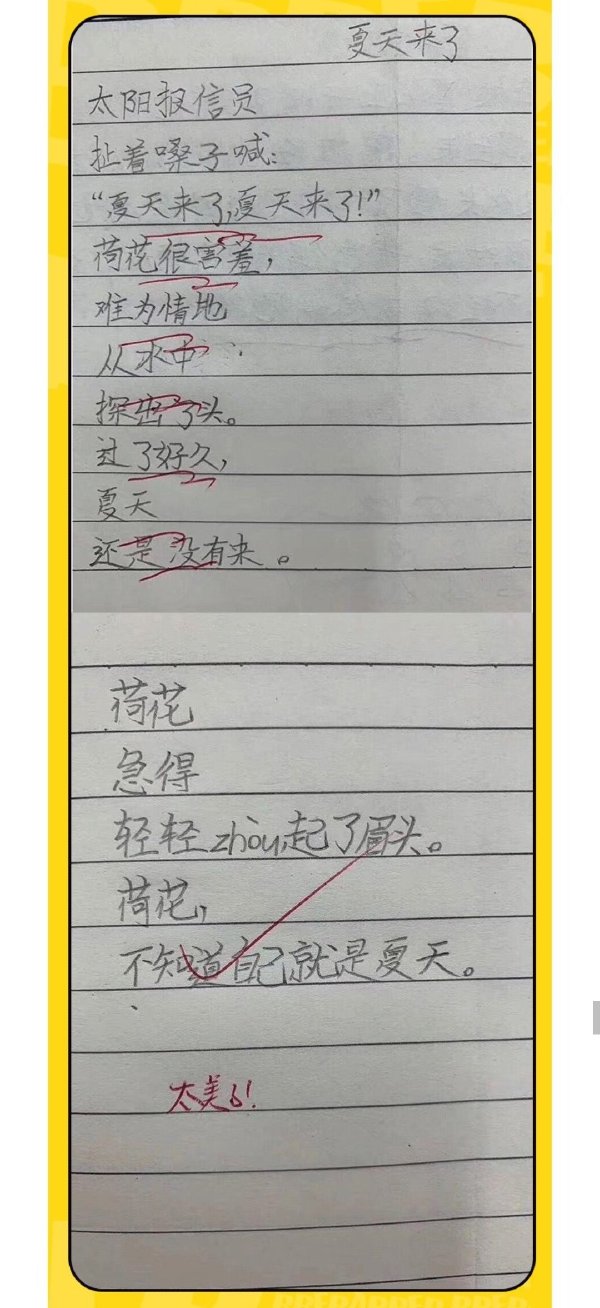 夏天来了
太阳报信员
扯着嗓子喊:
“夏天来了,夏天来了!”
荷花很害羞,
难为情地
从水中
探出了头。
过了好久,
夏天
还是没有来。
荷花
急得
轻轻zhòu起了眉头。
荷花,
不知道自己就是夏天。
太美了!